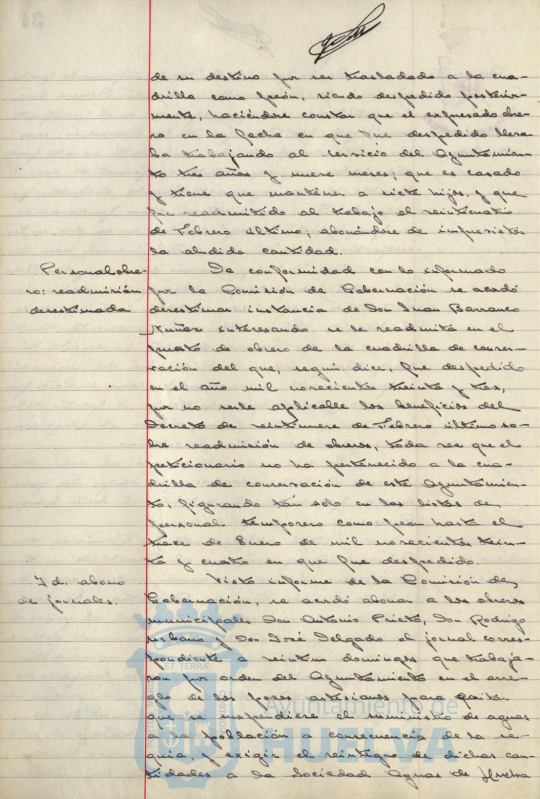 de su destino por ser trasladado a la cua-
drilla como peón, siendo despedido posterior-
mente, haciéndose constar que el expresado obre-
ro en la fecha en que fue despedido lleva-
ba trabajando al servicio del Ayuntamien-
to tres años y nueve meses; que es casado
y tiene que mantener a siete hijos, y que
fue readmitido al trabajo el veinticuatro
de Febrero último; abonándose de imprevistos
la aludida cantidad.
Personal obre-
ro: readmisión
desestimada
De conformidad con lo informado
por la Comisión de Gobernación se acordó
desestimar instancia de Don Juan Barranco
Núñez interesando se le readmita en el
puesto de obrero de la cuadrilla de conser-
vación del que, según dice, fue despedido
en el año mil novecientos treinta y tres,
por no serle aplicable los beneficios del
Decreto de veintinueve de Febrero último so-
bre readmisión de obreros, toda vez que el
peticionario no ha pertenecido a la cua-
drilla de conservación de este Ayuntamien-
to, figurando tan sólo en las listas de
personal temporero como peón hasta el
trece de Enero de mil novecientos trein-
ta y cuatro en que fue despedido.
Id. abono
de jornales.
Visto informe de la Comisión de
Gobernación, se acordó abonar a los obreros
municipales Don Antonio Prieto, Don Rodrigo
Urbano y Don José Delgado el jornal corres-
pondiente a veintiun domingos que trabaja-
ron por orden del Ayuntamiento en el arre-
glo de los pozos artesianos para evitar
que se suspendiese el suministro de aguas
a la población a consecuencia de la se-
quía, y exigir el reintegro de dichas can-
tidades a la Sociedad Aguas de Huelva
ET TERRA
Ayuntamiento de
HUELVA